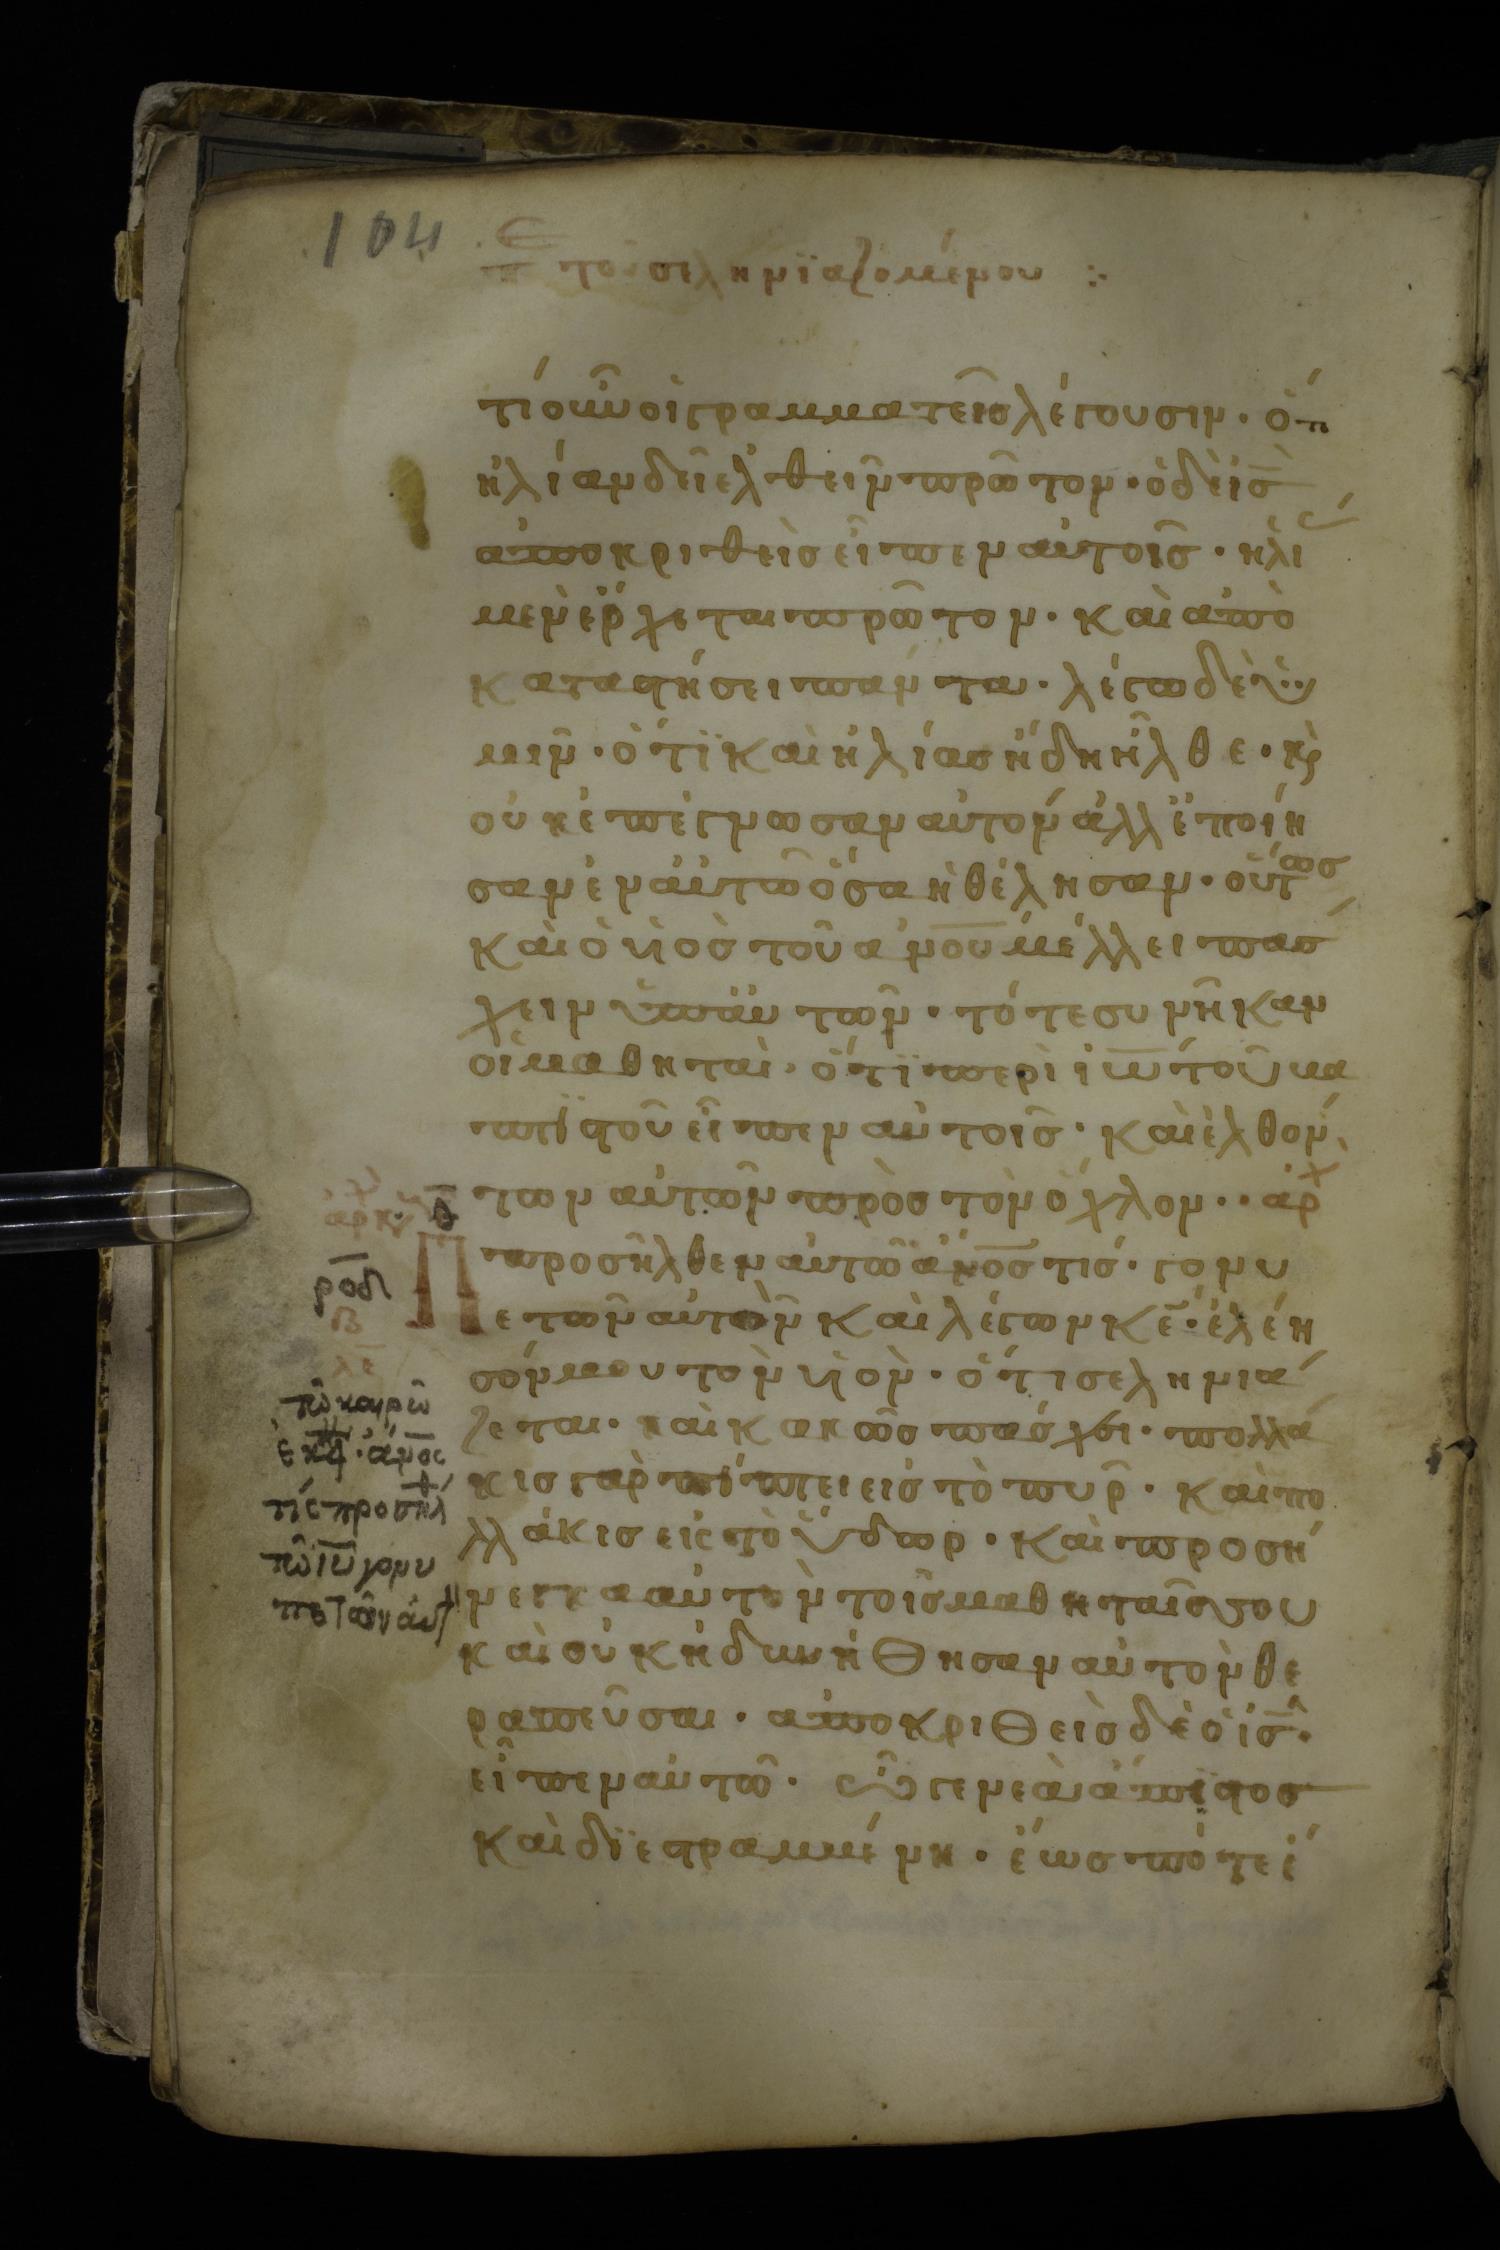 104
π τοῦ σεληνϊαζομένου :
τί οὖν οἱ γραμματεῖς λέγουσιν · ὅτι
ἠλίαν δεῖ ἐλθεῖν πρῶτον · ὁ δὲ ι̅ς̅
ἀποκριθεὶς εἶπεν αὐτοῖς · ἠλί
μὲν ἔρχεται πρῶτον · καὶ ἀπο
καταστήσει πάντα · λέγω δὲ ὑ
μῖν · ὅτϊ καὶ ἠλίας ἤδη ἦλθε · κ̀
οὐκ ἐπέγνωσαν αὐτόν ἀλλ ἐποίη
σαν ἐν αὐτῶ ὅσα ἠθέλησαν · οὕτως
καὶ ὁ ϋἱὸς τοῦ α̅ν̅ο̅υ̅ μέλλει πάσ
χειν ὑπ αὐτῶν · τότε συνῆκαν
οἱ μαθηταὶ · ὅτϊ περὶ ι̅ω̅ τοῦ βα
πτϊστοῦ εἶπεν αὐτοῖς · καὶ ἐλθόν
των αὐτῶν πρὸς τὸν ὄχλον · ἀρχ
προσῆλθεν αὐτῶ α̅ν̅ο̅ς̅ τις · γονυ
Πετῶν αὐτὸν καὶ λέγων κ̅ε̅ · ἐλέη
σόν μου τὸν υἱὸν · ὅτι σεληνιά
ζεται · καὶ κακῶς πάσχει · πολλά
κις γὰρ πίπτει εἰς τὸ πυρ · καὶ πο
λλάκις εἰς τὸ ὕδωρ · καὶ προσή
νεγκα αὐτὸν τοῖς μαθηταῖς σου
καὶ οὐκ ἠδυνήθησαν αὐτὸν θε
ραπεῦσαι · ἀποκριθεὶς δὲ ὁ ι̅ς̅ ·
εἶπεν αὐτῶ · ὦ γενεὰ ἄπϊστος
καὶ δϊεστραμμένη · ἕως πότε ἔ
ρ̅ο̅δ̅
β
λε
τῶ καιρῶ
ἐκ · α̅ν̅ο̅ς̅
τίς προσῆλ
τῶ ι̅υ̅ γονυ
πετῶν αὐτ